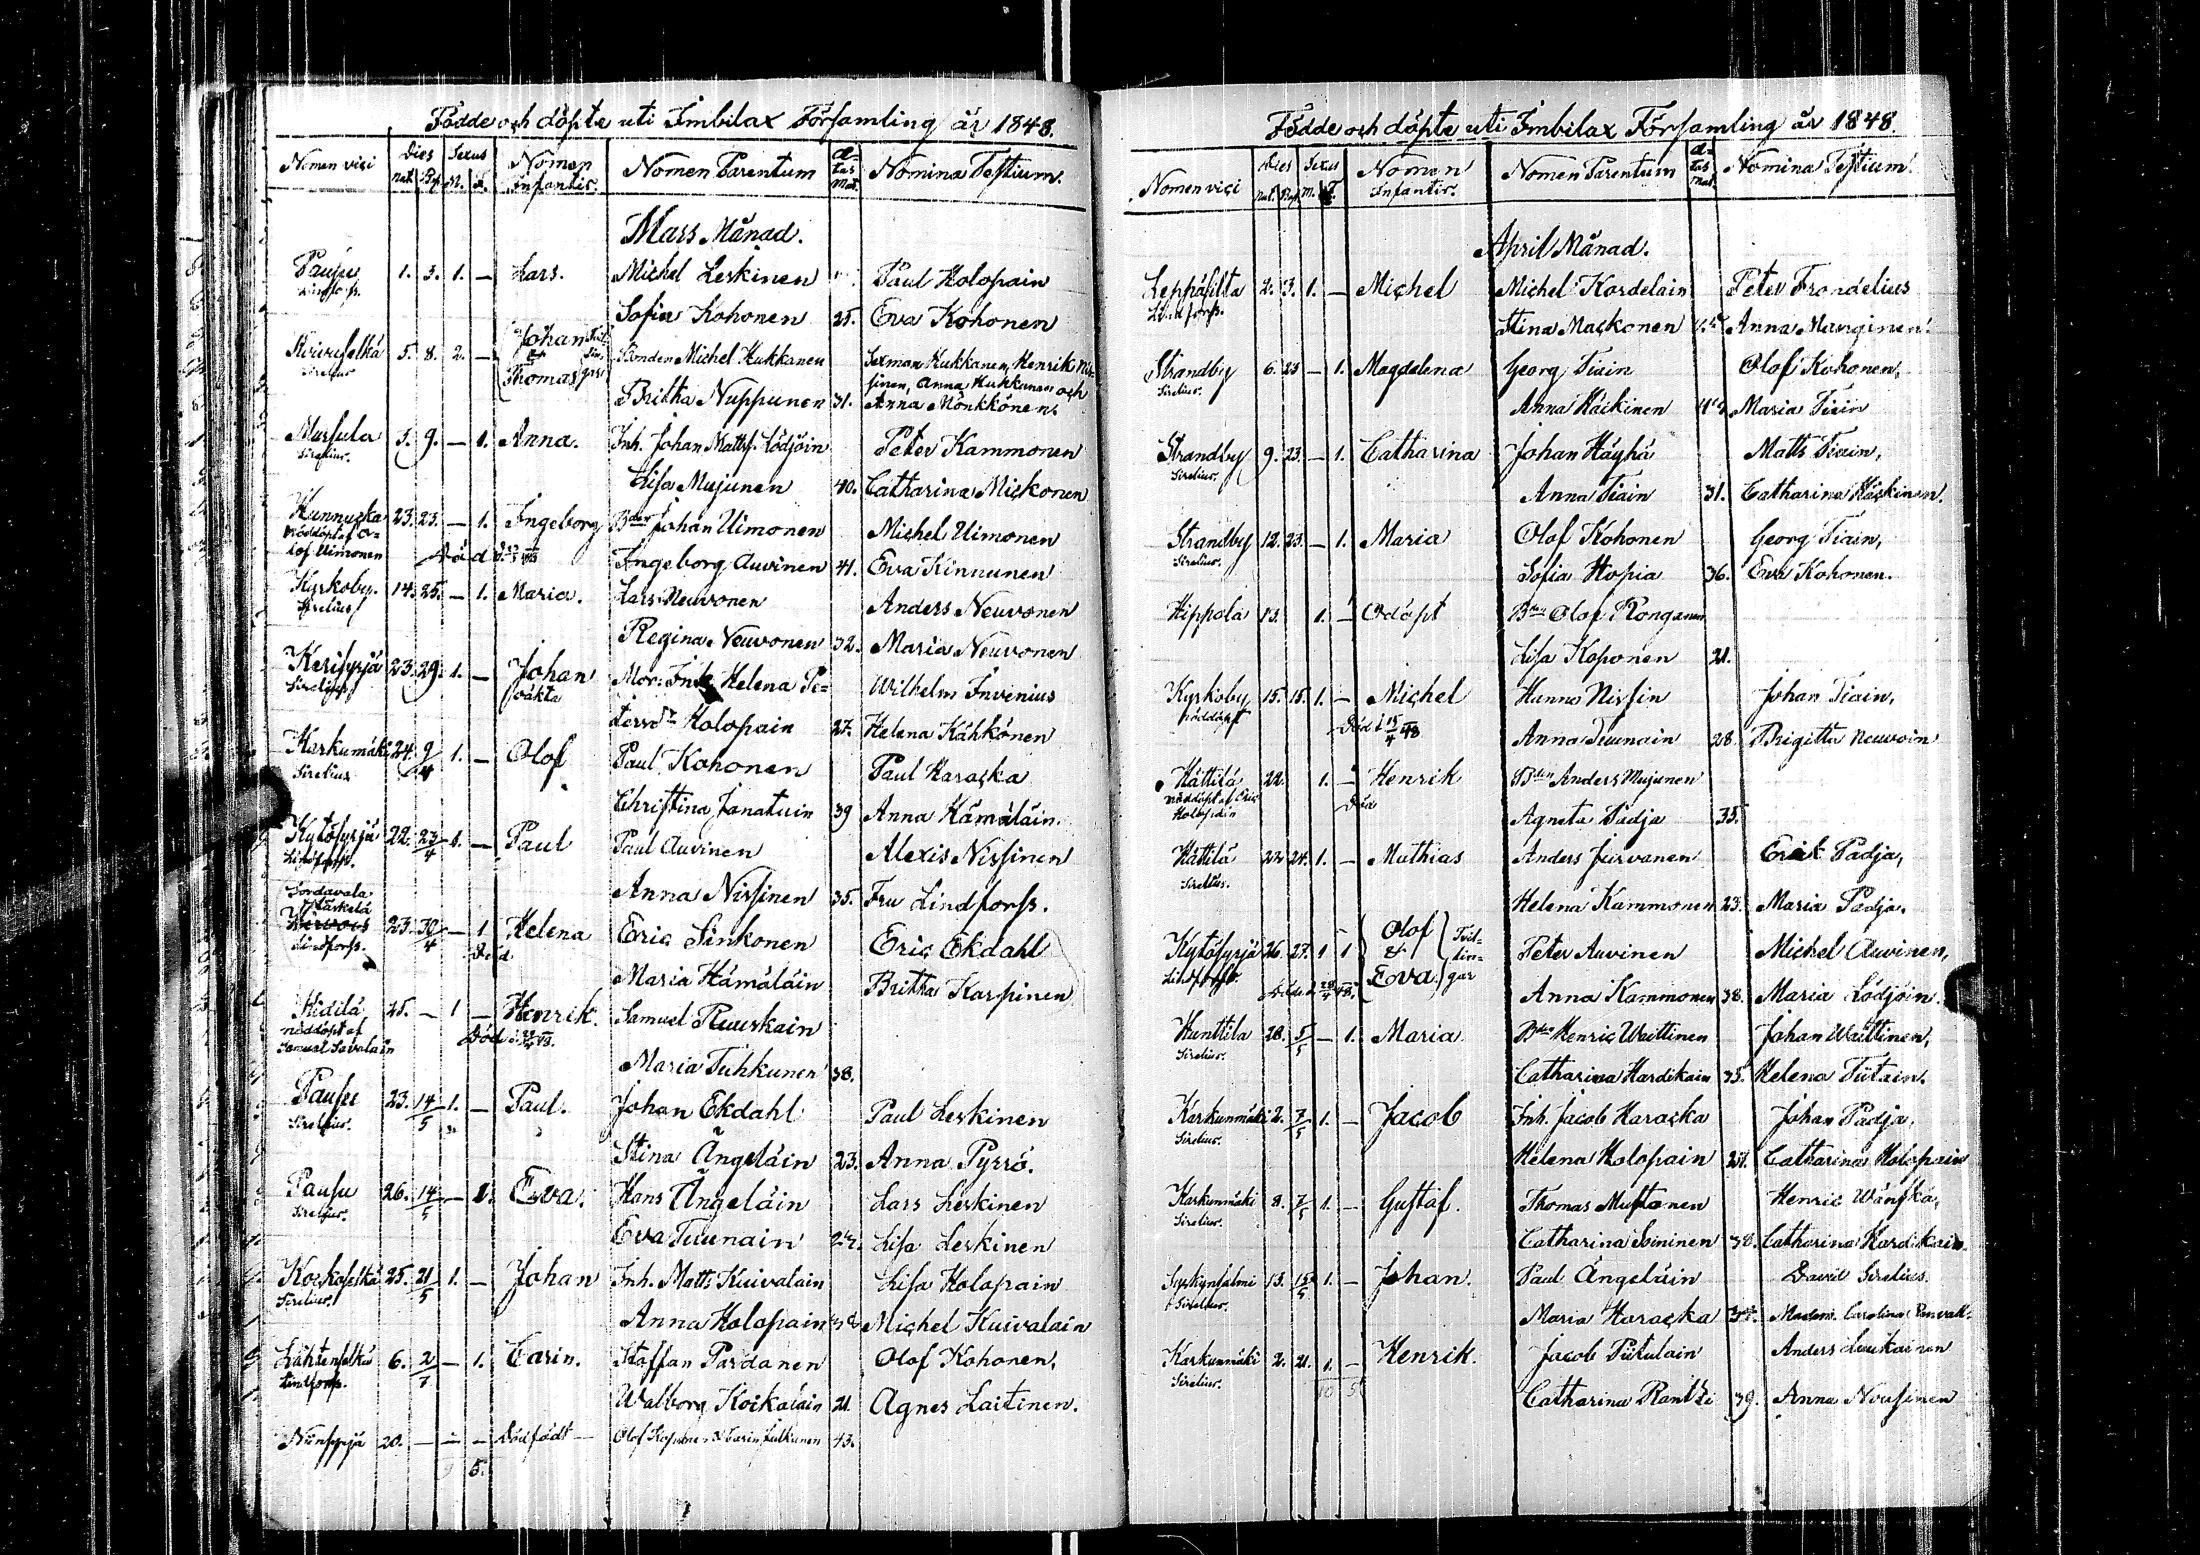 Födde och döpte uti Imbilax Församling år 1848.
Nomen vici Dies nat. Bap. Sexus M. F. Nomen Infantis. Nomen Parentum Ætas Mat. Nomina Testium.
Mars Månad.
Pausu 1. 3. 1. — Lars. Michel Leskinen Paul Holopain
Lindforss. Sofia Kohonen 25. Eva Kohonen
5. 8. 2. — Johan & Thomas Bonden Michel Kukkanen Sexman Kukkanen, Henrik Nissinen, Anna Kukkanen och
Sirelius Britha Nuppunen 31. Anna Mönkkönen.
Mursula 3. 9. — 1. Anna. Inh. Johan Mattss. Lödjöin Peter Kammonen
Sirelius. Lisa Mujunen 40. Catharina Mickonen
Hunnucka 23. 23. — 1. Ingeborg Bden Johan Uimonen Michel Uimonen
nöddöpt af Olof Uimonen Död Ingeborg Auvinen 41. Eva Kinnunen
Kyrkoby. 14. 25. — 1. Maria. Lars Neuvonen Anders Neuvonen
Sirelius Regina Neuvonen 32. Maria Neuvonen
Kerisyrjä 23. 29. 1. — Johan Mor: Inh. Helena Pe= Wilhelm Invenius
Sirelius oäkta tersdr Holopain 27. Helena Kähkönen
Karkumäki 24. 9/4 1. — Olof Paul Kohonen Paul Haracka
Sirelius Christina Janatuin 39 Anna Hämäläin.
Kytösyrjä 22. 23/4 1. — Paul Paul Auvinen Alexis Nissinen
Lindforss. Anna Nissinen 35. Fru Lindforss.
Sordavala
23. 30/4 — 1 Helena Eric Sinkonen Eric Ekdahl
Lindforss. Död Maria Hämäläin Britha Karpinen
Hidilä 25. — 1 — Henrik. Samuel Ruuskain
nöddöpt af Samuel Savalain Död Maria Tuhkunen 38.
Pausu 23. 14/5 1. — Paul. Johan Ekdahl Paul Leskinen
Sirelius. Stina Ängeläin 23. Anna Pyrrö.
Pausu 26. 14/5 — 1. Eva. Hans Ängeläin Lars Leskinen
Sirelius. Eva Tuunain Lisa Leskinen
Kockoselkä 25. 21/5 1. — Johan Inh. Matts Kuivalain Lisa Holopain
Sirelius. Anna Holopain Michel Kuivalain
Lähtenselkä 6. 2/7 — 1. Carin. Staffan Pardanen Olof Kohonen,
Lindforss. Walborg Koikalain 21. Agnes Laitinen.
20. — — Dödfödt — Olof Koponen & Carin Julkunen 43.
5.
Födde och döpte uti Imbilax Församling år 1848.
Nomen vici Dies nat. Bap. Sexus M. F. Nomen Infantis. Nomen Parentum Ætas Mat. Nomina Testium.
April Månad.
Leppäsilta 2. 3. 1. — Michel Michel Kordelain Peter Frondelius
Lindforss. Stina Mackonen Anna Manginen.
Strandby 6. 23 — 1. Magdalena Georg Tiain Olof Kohonen,
Sirelius. Anna Häckinen Maria Tiain
Strandby 9. 23. — 1. Catharina Johan Häyhä Matts Tiain,
Sirelius. Anna Tiain 31. Catharina Häckinen.
Strandby 12. 23. — 1. Maria Olof Kohonen Georg Tiain,
Sirelius. Sofia Hopia 36. Eva Kohonen.
Hippola 13. 1. — Odöpt Bden Olof Ronganen
Lisa Koponen 21.
Kyrkoby 15. 15. 1. — Michel Hanno Nissin Johan Tiain,
nöddöpt Död d. 15/4 48 Anna Tuunain 28 Brigitta Neuvoin
Hättilä 22. 1. — Henrik Bden Anders Mujunen
nöddöpt af Eric Holopain Död Agneta Padja 33.
Hättilä 22 24. 1. — Mathias Anders Jurvanen Erik Padja,
Sirelius. Helena Kammonen 23. Maria Padja.
Kytösyrjä 26. 27. 1 1 Olof & Eva. Tvillingar Peter Auvinen Michel Auvinen,
Lindforss. Anna Kammonen 38. Maria Lödjöin.
Hunttila 28. 5/5 — 1. Maria Bden Henric Waittinen Johan Waittinen,
Sirelius. Catharina Hardikain 35. Helena Tiitain.
Karkunmäki 2. 7/5 1. — Jacob Inh. Jacob Haracka Johan Padja,
Sirelius. Helena Holopain Catharina Holopain
Karkunmäki 8. 7/5 1. — Gustaf. Thomas Mustonen Henric Wänskä,
Sirelius. Catharina Soininen 38. Catharina Hardikain.
Syskynsalmi 13. 15/5 1. — Johan. Paul Ängeläin David Sirelius.
Sirelius. Maria Haracka Madem. Carolina
Karkunmäki 2. 21. 1. — Henrik. Jacob Tiitulain Anders Laukainen
Sirelius. 10 5 Catharina Rantzi 39. Anna Nousinen